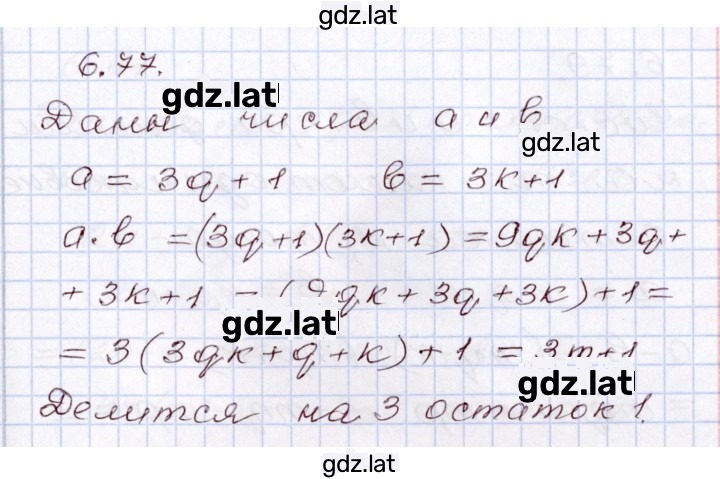 gdz.lat
6.77.
gdz.lat
Даны числа a и b
gdz.lat
a = 3q + 1 b = 3k+1
a·b =(3q+1)(3k+1)=9qk+3q+
+ 3k+1 = (9qk+3q+3k)+1=
gdz.lat
= 3(3qk+q+k)+1 = 3m+1
gdz.lat
Делится на 3 остаток 1.
gdz.lat